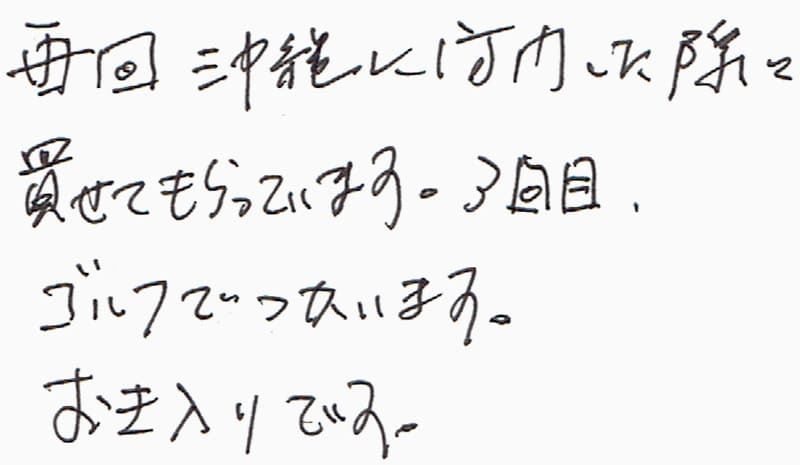 毎回沖縄に行った際に
買せてもらっています。3回目、
ゴルフでつかいます。
お気入りです。